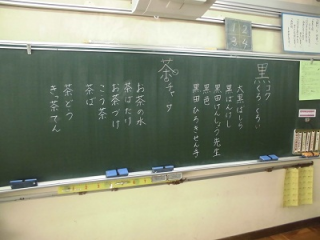 黒 コク
くろ くろい
大黒ばしら
黒ばんけし
黒田けんしろう先生
黒色
黒田ひろきせん手
茶 チャ サ
お茶の水
茶ばたけ
お茶づけ
こう茶
茶ば
茶どう
きっ茶てん